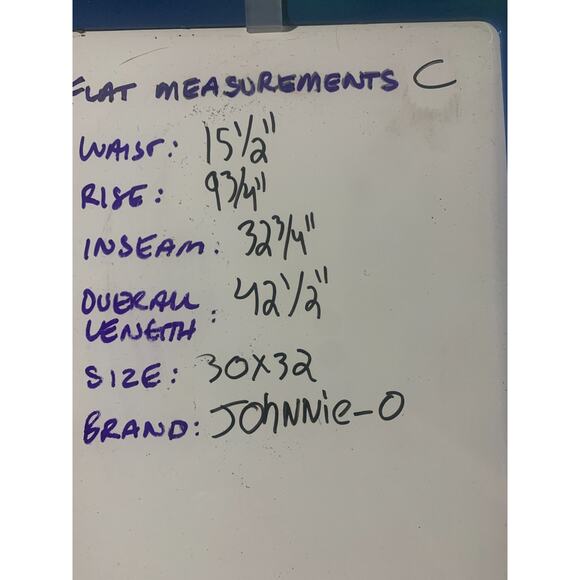 FLAT MEASUREMENTS C
WAIST: 15 1/2"
RISE: 9 3/4"
INSEAM: 32 3/4"
OVERALL
LENGTH: 42 1/2"
SIZE: 30X32
BRAND: JOhNNiE-O